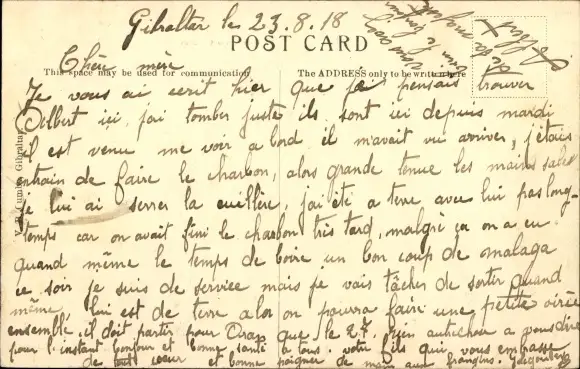 Gibraltar les 23.8.18
POST CARD
Chère mère
This space may be used for communication
The ADDRESS only to be written here
Je vous ai ecrit hier que je pensais trouver
ici, j'ai tomber juste ils sont ici depuis mardi
il est venu me voir a bord il m'avait vu arriver, j'étais
entrain de faire le charbon, alors grande tenue les mains sales
je lui ai serrer la cuillère, j'ai été a terre avec lui pas long-
temps car on avait fini le charbon très tard, malgré ça on a eu
quand même le temps de boire un bon coup de malaga
ce soir je suis de service mais je vais tâcher de sortir quand
même, lui est de terre alor on pourra faire une petite soirée
ensemble, il doit partir pour Oran que le 27, rien autre chose a vous dire
pour l'instant bonjour et bonne santé a tous. votre fils qui vous embrasse
de tout cœur et bonne poigner de main aux frangins.
Gibraltar